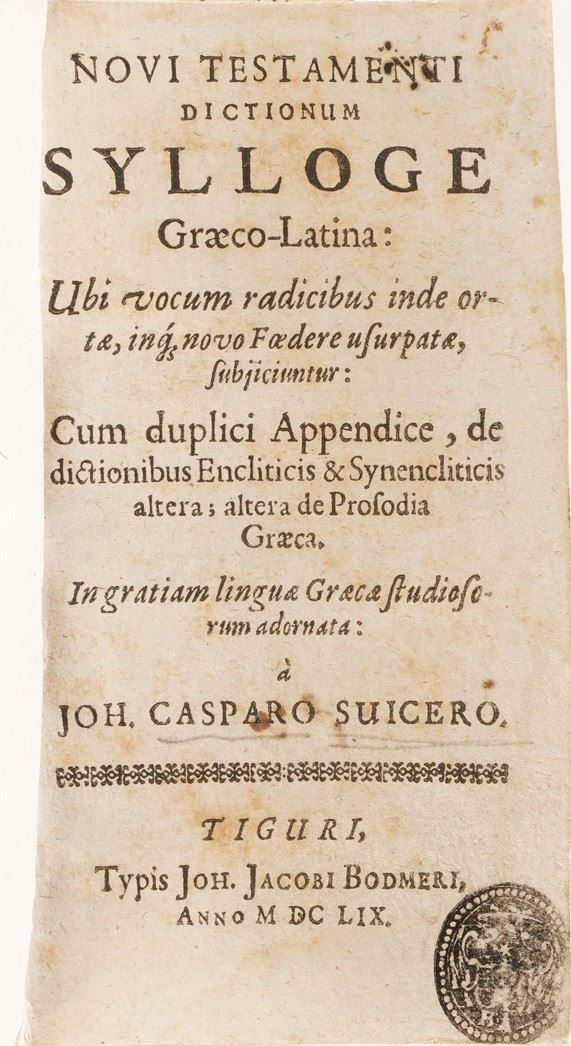 NOVI TESTAMENTI
DICTIONUM
SYLLOGE
Græco-Latina:
Ubi vocum radicibus inde or-
tæ, inq́; novo Fœdere uſurpatæ,
ſubjiciuntur:
Cum duplici Appendice, de
dictionibus Encliticis & Synencliticis
altera; altera de Proſodia
Græca.
In gratiam linguæ Græcæ ſtudioſo-
rum adornata:
à
JOH. CASPARO SUICERO.
TIGURI,
Typis JOH. JACOBI BODMERI,
ANNO M DC LIX.